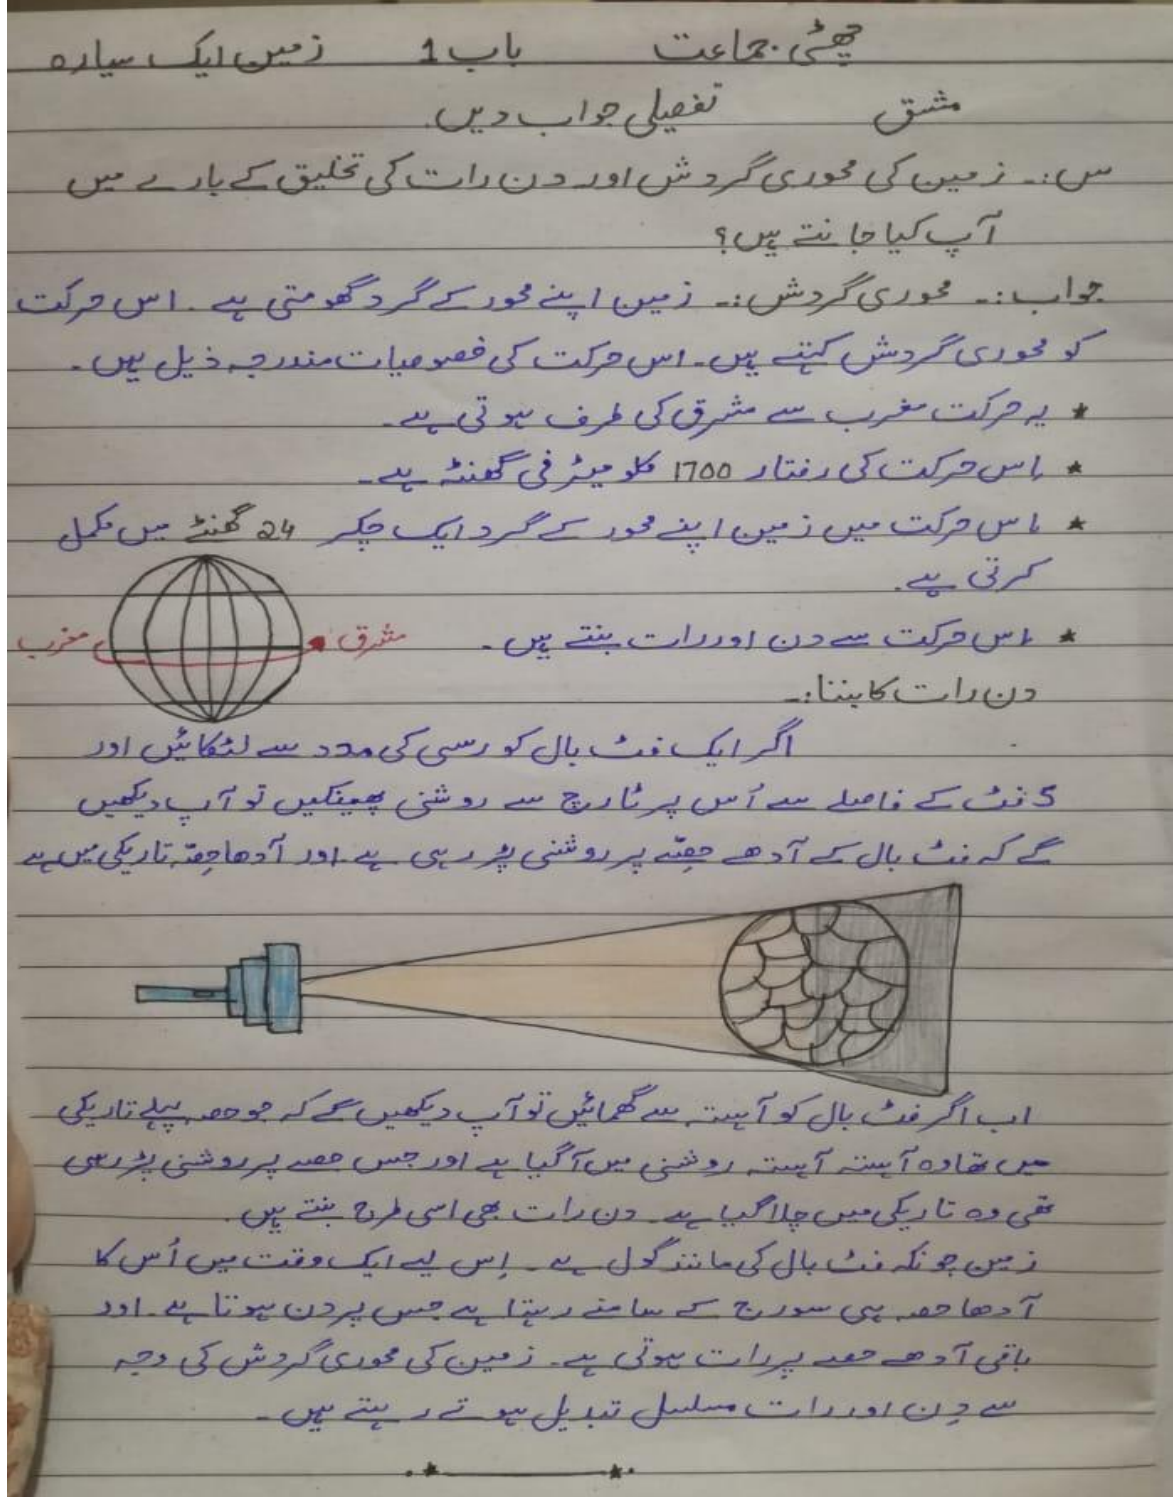 چھٹی جماعت باب 1 زمین ایک سیارہ
مشق تفصیلی جواب دیں.
س:۔ زمین کی محوری گردش اور دن رات کی تخلیق کے بارے میں
آپ کیا جانتے ہیں؟
جواب:۔ محوری گردش:۔ زمین اپنے محور کے گرد گھومتی ہے ۔ اس حرکت
کو محوری گردش کہتے ہیں۔ اس حرکت کی خصوصیات مندرجہ ذیل ہیں۔
* یہ حرکت مغرب سے مشرق کی طرف ہوتی ہے۔
* اس حرکت کی رفتار 1700 کلو میٹر فی گھنٹہ ہے۔
* اس حرکت میں زمین اپنے محور کے گرد ایک چکر 24 گھنٹے میں مکمل
کرتی ہے۔
* اس حرکت سے دن اور رات بنتے ہیں۔ مشرق مغرب
دن رات کا بننا:۔
اگر ایک فٹ بال کو رسی کی مدد سے لٹکائیں اور
5 فٹ کے فاصلے سے اُس پر ٹارچ سے روشنی پھینکیں تو آپ دیکھیں
گے کہ فٹ بال کے آدھے حِصّے پر روشنی پڑ رہی ہے اور آدھا حِصّہ تاریکی میں ہے
اب اگر فٹ بال کو آہستہ سے گھمائیں تو آپ دیکھیں گے کہ جو حصہ پہلے تاریکی
میں تھا وہ آہستہ آہستہ روشنی میں آ گیا ہے اور جس حصے پر روشنی پڑ رہی
تھی وہ تاریکی میں چلا گیا ہے۔ دن رات بھی اسی طرح بنتے ہیں۔
زمین چونکہ فٹ بال کی مانند گول ہے۔ اِس لیے ایک وقت میں اُس کا
آدھا حصہ ہی سورج کے سامنے رہتا ہے جس پر دن ہوتا ہے۔ اور
باقی آدھے حصے پر رات ہوتی ہے۔ زمین کی محوری گردش کی وجہ
سے دِن اور رات مسلسل تبدیل ہوتے رہتے ہیں۔